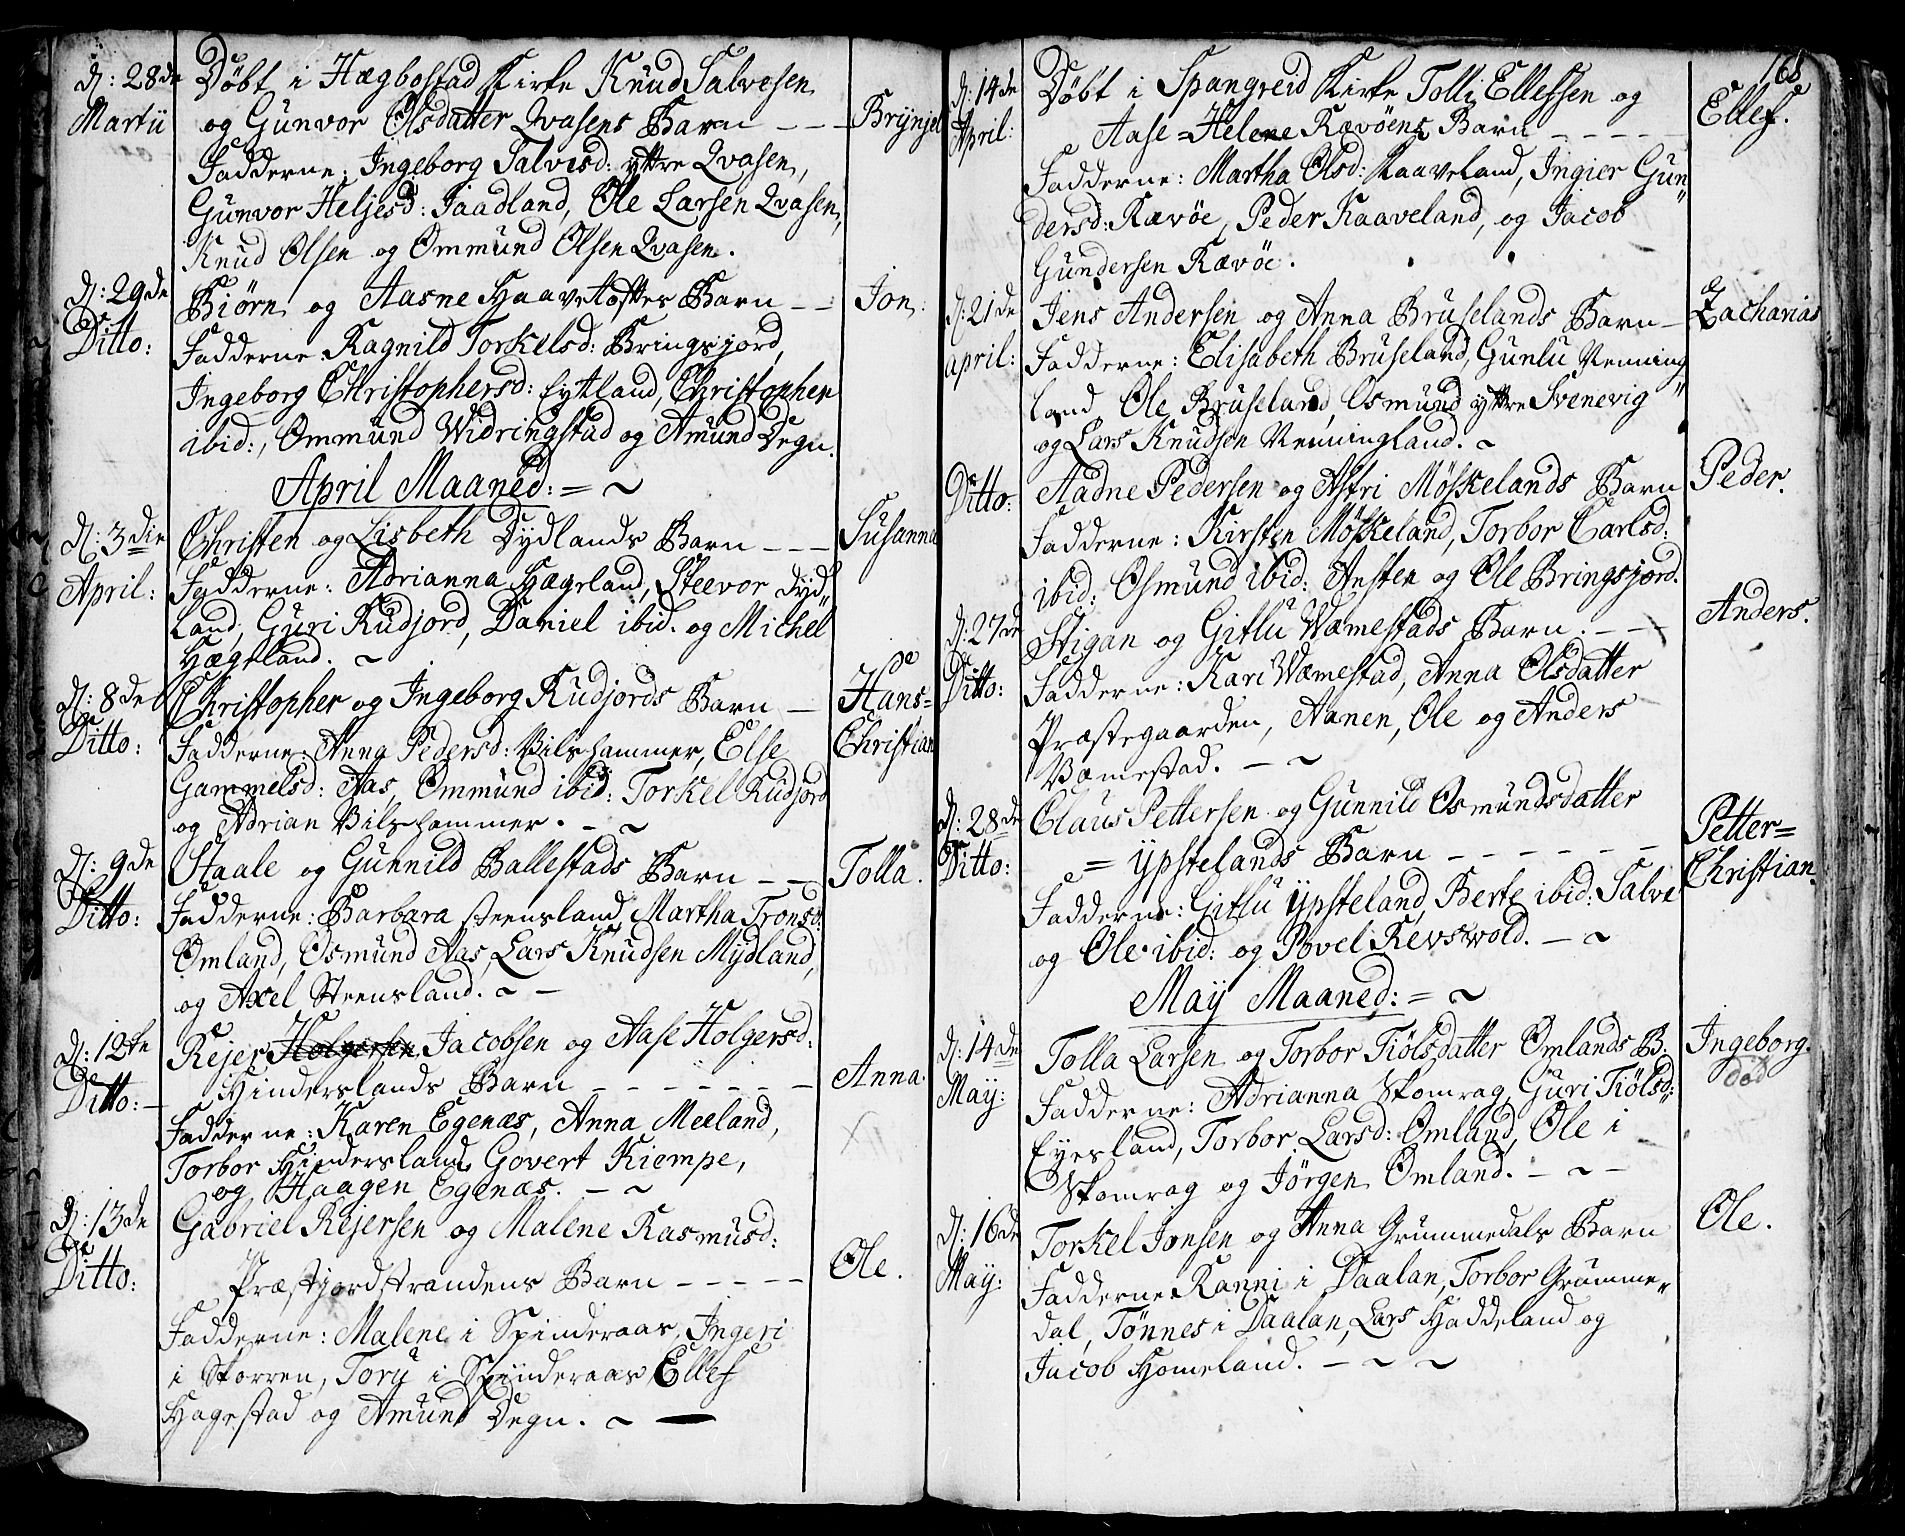 d: 28de Døbt i Hægbostad Kirke Knud Salvesen
Martii og Gunvor Olsdatter Qvasens Barn - - - Brÿnjel
Fadderne: Ingeborg Salvesd: ÿttre Qvasen,
Gunvor Heljesd: Jaadland, Ole Larsen Qvasen,
Knud Olsen og Ommund Olsen Qvasen.
d: 29de Biørn og Aasne Haavetofttes Barn - - Jon.
Ditto: Fadderne Ragnild Torkelsd: Bringsjord,
Ingeborg Christophersd: Eÿtland, Christopher
ibid:, Ommund Widringstad og Amund Degn.
April Maaned: = ~
d: 3die Christen og Lisbeth Dydlands Barn - - - Susanna
April: Fadderne: Adrianna Hægeland, Steevor Dÿd„
land, Guri Rudjord, Daniel ibid. og Michel
Hægeland. ~
d: 8de Christopher og Ingeborg Rudjords Barn - Hans=
Ditto: Fadderne: Anna Pedersd: Vilshammer, Else Christian
Gammelsd: Aas, Ommund ibid: Torkel Rudjord
og Adrian Vilshammer. - ~
d: 9de Staale og Gunnild Ballestads Barn - - Tolla.
Ditto: Fadderne: Barbara Steensland, Martha Tronsd:
Omland, Osmund Aas, Lars Knudsen Mÿdland,
og Axel Steensland. ~ -
d: 12te Rejer Holgersen Jacobsen og Aase Holgersd:
Ditto: - Hinderslands Barn - - - - - - - Anna.
Fadderne: Karen Egenæs, Anna Meeland,
Torbor Hindersland, Govert Kiempe,
og Haagen Egenæs. - ~
d: 13de Gabriel Rejersen og Malene Rasmusd:
Ditto: Præstjordstrandens Barn - - - - - Ole.
Fadderne: Malene i Spinderaas, Ingeri
i Skorren, Torÿ i Spinderaas, Ellef
Hagestad og Amund Degn. ~ —
168
d: 14de Døbt i Spangreid Kirke Tolli Ellefsen og Ellef.
April: Aase=Helene Rævøens Barn - - - -
Fadderne: Martha Olsd: Kaaveland, Ingier Gun„
dersd: Rævøe, Peder Kaaveland, og Jacob
Gundersen Rævøe.
d: 21de Jens Andersen og Anna Bruselands Barn - Zacharias
april: Fadderne: Elisabeth Bruseland, Gunlu Venning
land, Ole Bruseland, Osmund ÿttre Svenevig
og Lars Knudsen Venningland. ~
Ditto: Aadne Pedersen og Astri Møskelands Barn Peder.
Fadderne: Kirsten Møskeland, Torbor Carlsd:
ibid: Osmund ibid: Ansten og Ole Bringsjord.
d: 27de Stigan og Gitlu Wæmestads Barn. - - Anders.
Ditto: Fadderne: Kari Wæmestad, Anna Olsdatter
Præstegaarden, Aanen, Ole og Anders
Væmestad. - ~
d: 28de Claus Pettersen og Gunnild Osmundsdatter Petter=
Ditto: = Ypstelands Barn - - - - - - Christian.
Fadderne: Gitlu Ypsteland, Berte ibid: Salve
og Ole ibid: og Povel Revswold. - ~
Maÿ Maaned: = ~
d: 14de Tolla Larsen og Torbor Tiølsdatter Omlands B: Ingeborg.
død
Maÿ: Fadderne: Adrianna Skomrag, Guri Tiølsd:
Eyesland, Torbor Larsd: Omland, Ole i
Skomrag og Jørgen Omland. - ~ -
d: 16de Torkel Jonsen og Anna Grummedals Barn Ole.
Maÿ: Fadderne Ranni i Daalan, Torbor Grumme„
dal, Tønnes i Daalan, Lars Haddeland og
Jacob Homeland. - ~ ~